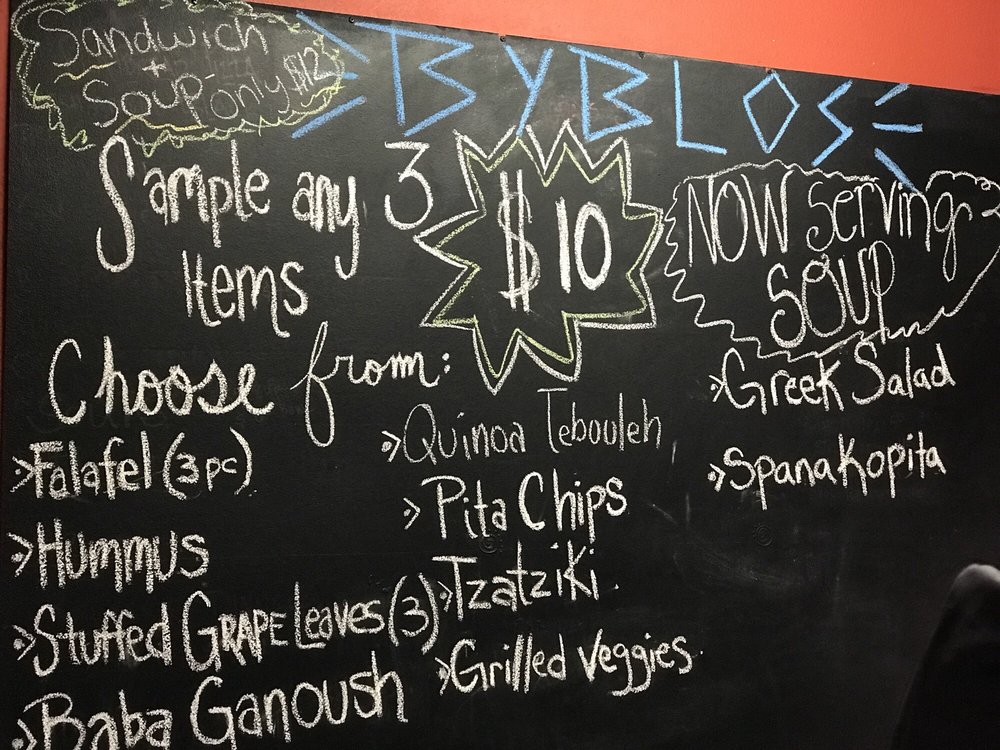 Sandwich
+
Soup only $12
BYBLOS
Sample any 3
Items
$10
NOW Serving
SOUP
Choose from:
Falafel (3pc)
Hummus
Stuffed GRAPE Leaves (3)
Baba Ganoush
Quinoa Tebouleh
Pita Chips
Tzatziki
Grilled Veggies
Greek Salad
Spanakopita